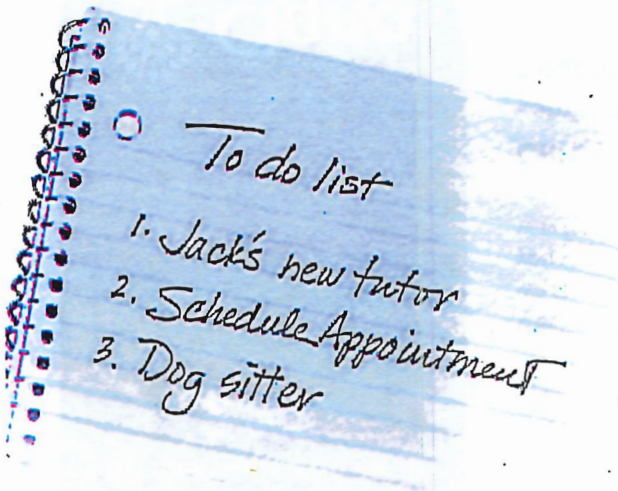 To do list
1. Jack's new tutor
2. Schedule Appointment
3. Dog sitter